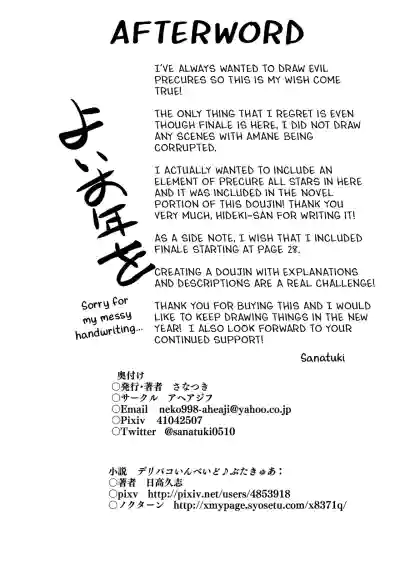 AFTERWORD
I'VE ALWAYS WANTED TO DRAW EVIL
PRECURES SO THIS IS MY WISH COME
TRUE!
THE ONLY THING THAT I REGRET IS EVEN
THOUGH FINALE IS HERE, I DID NOT DRAW
ANY SCENES WITH AMANE BEING
CORRUPTED.
I ACTUALLY WANTED TO INCLUDE AN
ELEMENT OF PRECURE ALL STARS IN HERE
AND IT WAS INCLUDED IN THE NOVEL
PORTION OF THIS DOUJIN! THANK YOU
VERY MUCH, HIDEKI-SAN FOR WRITING IT!
AS A SIDE NOTE, I WISH THAT I INCLUDED
FINALE STARTING AT PAGE 28.
CREATING A DOUJIN WITH EXPLANATIONS
AND DESCRIPTIONS ARE A REAL CHALLENGE!
THANK YOU FOR BUYING THIS AND I WOULD
LIKE TO KEEP DRAWING THINGS IN THE NEW
YEAR! I ALSO LOOK FORWARD TO YOUR
CONTINUED SUPPORT!
Sanatuki
よいお年を
Sorry for
my messy
handwriting...
奥付け
○発行・著者 さなつき
○サークル アヘアジフ
○Email neko998-aheaji@yahoo.co.jp
○Pixiv 41042507
○Twitter @sanatuki0510
小説 デリバコいんべいど♪ぷたきゅあ:
○著者 日高久志
○pixv http://pixiv.net/users/4853918
○ノクターン http://xmypage.syosetu.com/x8371q/